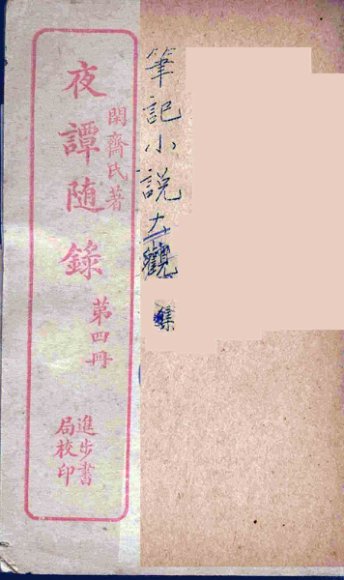 筆記小說大觀
集
閑齋氏著
夜譚随錄
第四冊
進步書
局校印